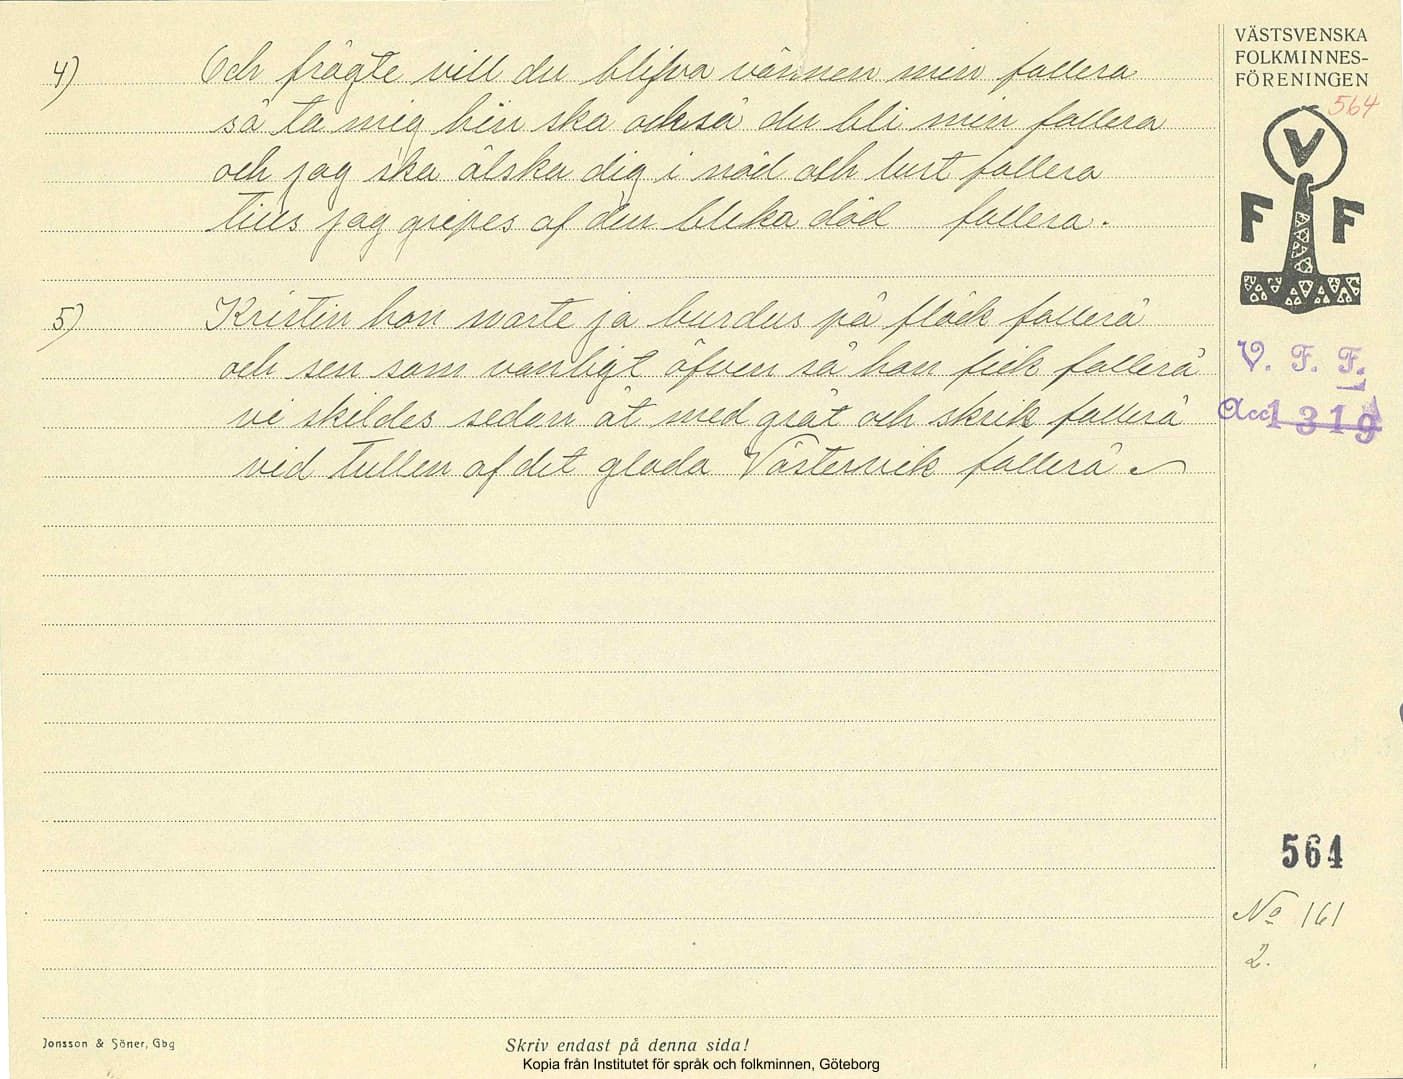 4) Och frågte vill du blifva vännen min fallera
så ta mig hin ska också du bli min fallera
och jag ska älska dig i nöd och lust fallera
tills jag gripes af den bleka död fallera.
5) Kristin hon narte ja burdus på fläck fallerà
och sen som vanligt äfven så hon fick fallerà
vi skildes sedan åt med gråt och skrik fallerà
vid tullen af det glada Västervik fallerà
VÄSTSVENSKA
FOLKMINNES-
FÖRENINGEN
564
V
F F
V. F. F.
Acc 1319
564
No 161
2.
Jonsson & Söner, Gbg
Skriv endast på denna sida!
Kopia från Institutet för språk och folkminnen, Göteborg